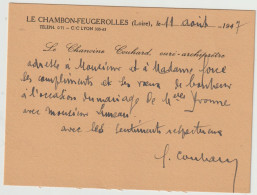 LE CHAMBON-FEUGEROLLES (Loire), le 11 août 1947
TÉLÉPH. 2-11 - C.C. LYON
Le Chanoine Couhard, curé-archiprêtre
adresse à Monsieur et à Madame
les compliments et les vœux de bonheur
à l'occasion du mariage de Mlle Yvonne
avec monsieur
avec les sentiments respectueux